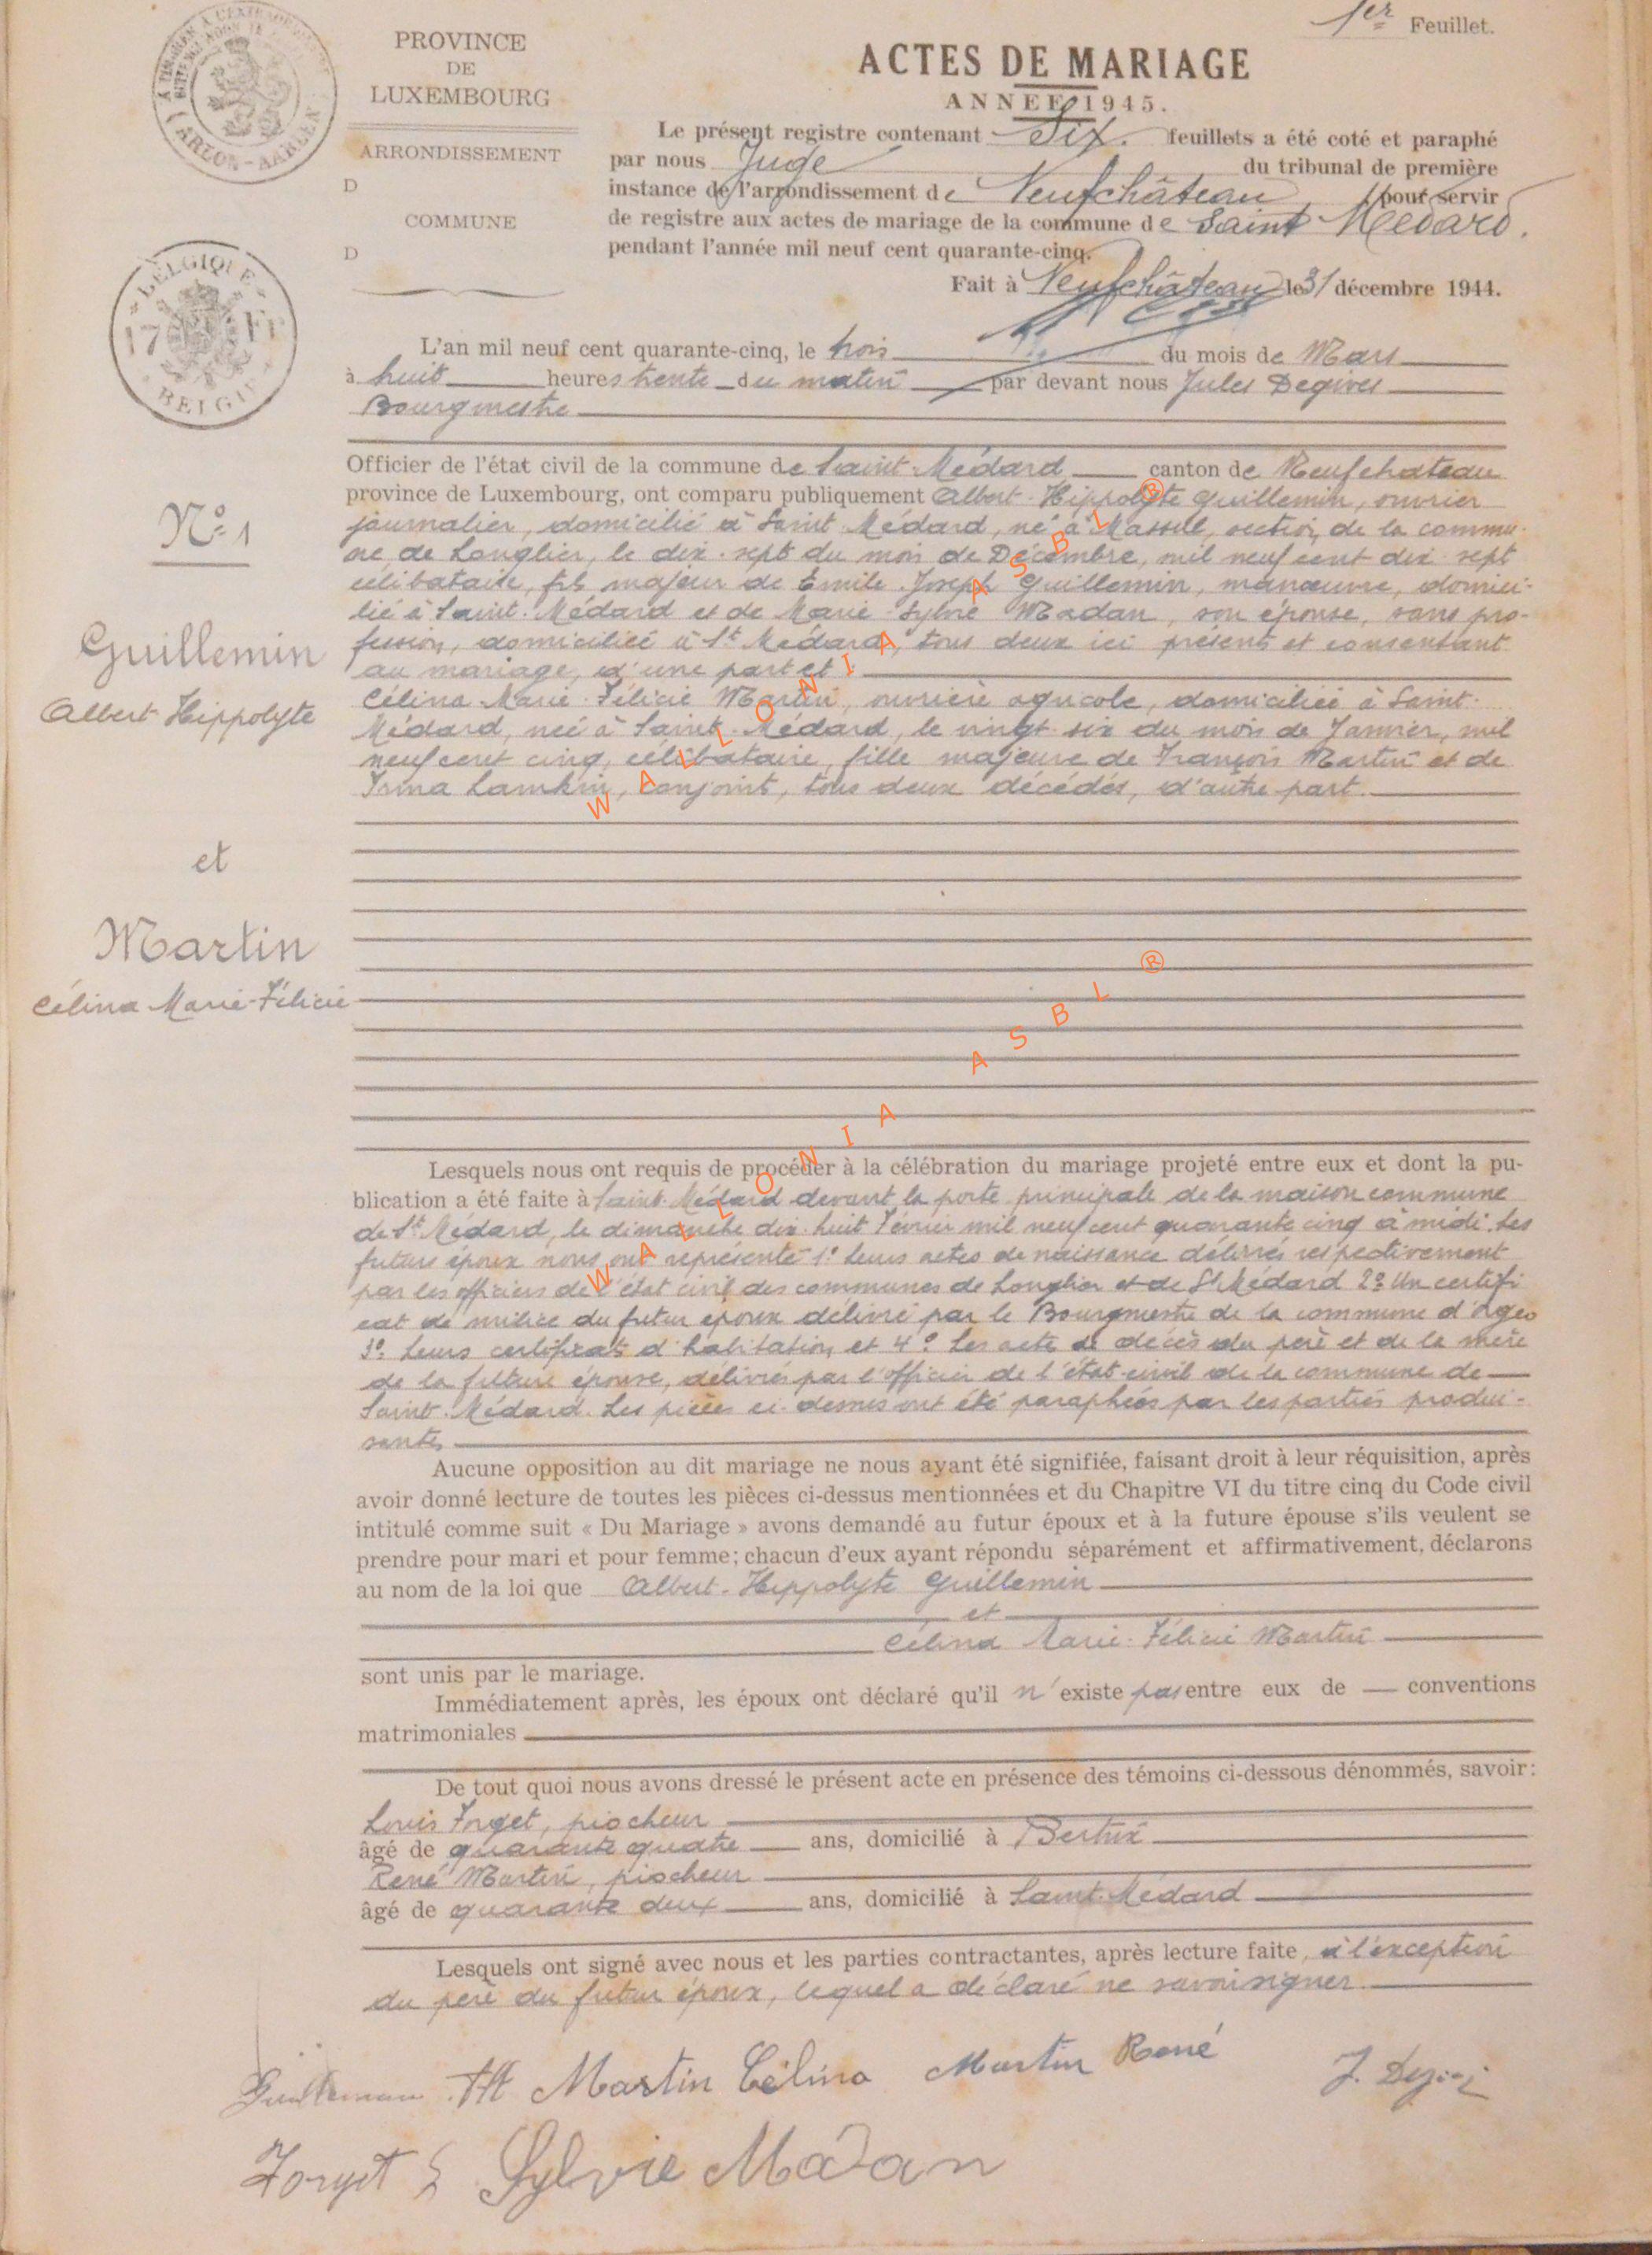 1er Feuillet.
PROVINCE
DE
LUXEMBOURG
ARRONDISSEMENT
D
COMMUNE
D
ACTES DE MARIAGE
ANNÉE 1945.
Le présent registre contenant Six feuillets a été coté et paraphé
par nous Juge du tribunal de première
instance de l'arrondissement de Neufchâteau pour servir
de registre aux actes de mariage de la commune de Saint Médard.
pendant l'année mil neuf cent quarante-cinq.
Fait à Neufchâteau le 31 décembre 1944.
BELGIQUE
17 Fr
BELGIE
ARLON-AARLEN
L'an mil neuf cent quarante-cinq, le trois du mois de Mars
à huit heures trente du matin par devant nous Jules Degives
Bourgmestre
Officier de l'état civil de la commune de Saint-Médard canton de Neufchateau
province de Luxembourg, ont comparu publiquement Albert-Hippolyte Guillemin, ouvrier
journalier, domicilié à Saint-Médard, né à Massul, section de la commu-
ne de Longlier, le dix-sept du mois de Décembre, mil neuf cent dix-sept
célibataire, fils majeur de Emile Joseph Guillemin, manœuvre, domici-
lié à Saint-Médard et de Marie-Sylvie Madan, son épouse, sans pro-
fession, domiciliée à St Médard, tous deux ici présents et consentant
au mariage, d'une part et :
Célina Marie-Félicie Martin, ouvrière agricole, domiciliée à Saint-
Médard, née à Saint-Médard, le vingt-six du mois de Janvier, mil
neuf cent cinq, célibataire, fille majeure de François Martin et de
Irma Lamkin, conjoint, tous deux décédés, d'autre part.
N° 1
Guillemin
Albert-Hippolyte
et
Martin
Célina Marie-Félicie
Lesquels nous ont requis de procéder à la célébration du mariage projeté entre eux et dont la pu-
blication a été faite à Saint-Médard devant la porte principale de la maison commune
de St Médard, le dimanche dix-huit Février mil neuf cent quarante cinq à midi. Les
futurs époux nous ont représenté 1° leurs actes de naissance délivrés respectivement
par les officiers de l'état civil des communes de Longlier et de St Médard 2° Un certifi
cat de milice du futur époux délivré par le Bourgmestre de la commune d'Orgeo
3° Leurs certificats d'habitation et 4° Les acte de décès du père et de la mère
de la future épouse, délivrés par l'officier de l'état-civil de la commune de
Saint-Médard. Les pièces ci-dessus ont été paraphées par les parties produi-
santes
Aucune opposition au dit mariage ne nous ayant été signifiée, faisant droit à leur réquisition, après
avoir donné lecture de toutes les pièces ci-dessus mentionnées et du Chapitre VI du titre cinq du Code civil
intitulé comme suit « Du Mariage » avons demandé au futur époux et à la future épouse s'ils veulent se
prendre pour mari et pour femme; chacun d'eux ayant répondu séparément et affirmativement, déclarons
au nom de la loi que Albert-Hippolyte Guillemin
et
Célina Marie-Félicie Martin
sont unis par le mariage.
Immédiatement après, les époux ont déclaré qu'il n'existe pas entre eux de — conventions
matrimoniales
De tout quoi nous avons dressé le présent acte en présence des témoins ci-dessous dénommés, savoir:
Louis Forget, piocheur
âgé de quarante quatre ans, domicilié à Bertrix
René Martin, piocheur
âgé de quarante deux ans, domicilié à Saint-Médard
Lesquels ont signé avec nous et les parties contractantes, après lecture faite, à l'exception
du père du futur époux, lequel a déclaré ne savoir signer.
Guillemin Alt Martin Célina Martin René J. Degives
Forget L Sylvie Madan
WALLONIA ASBL ®
WALLONIA ASBL ®